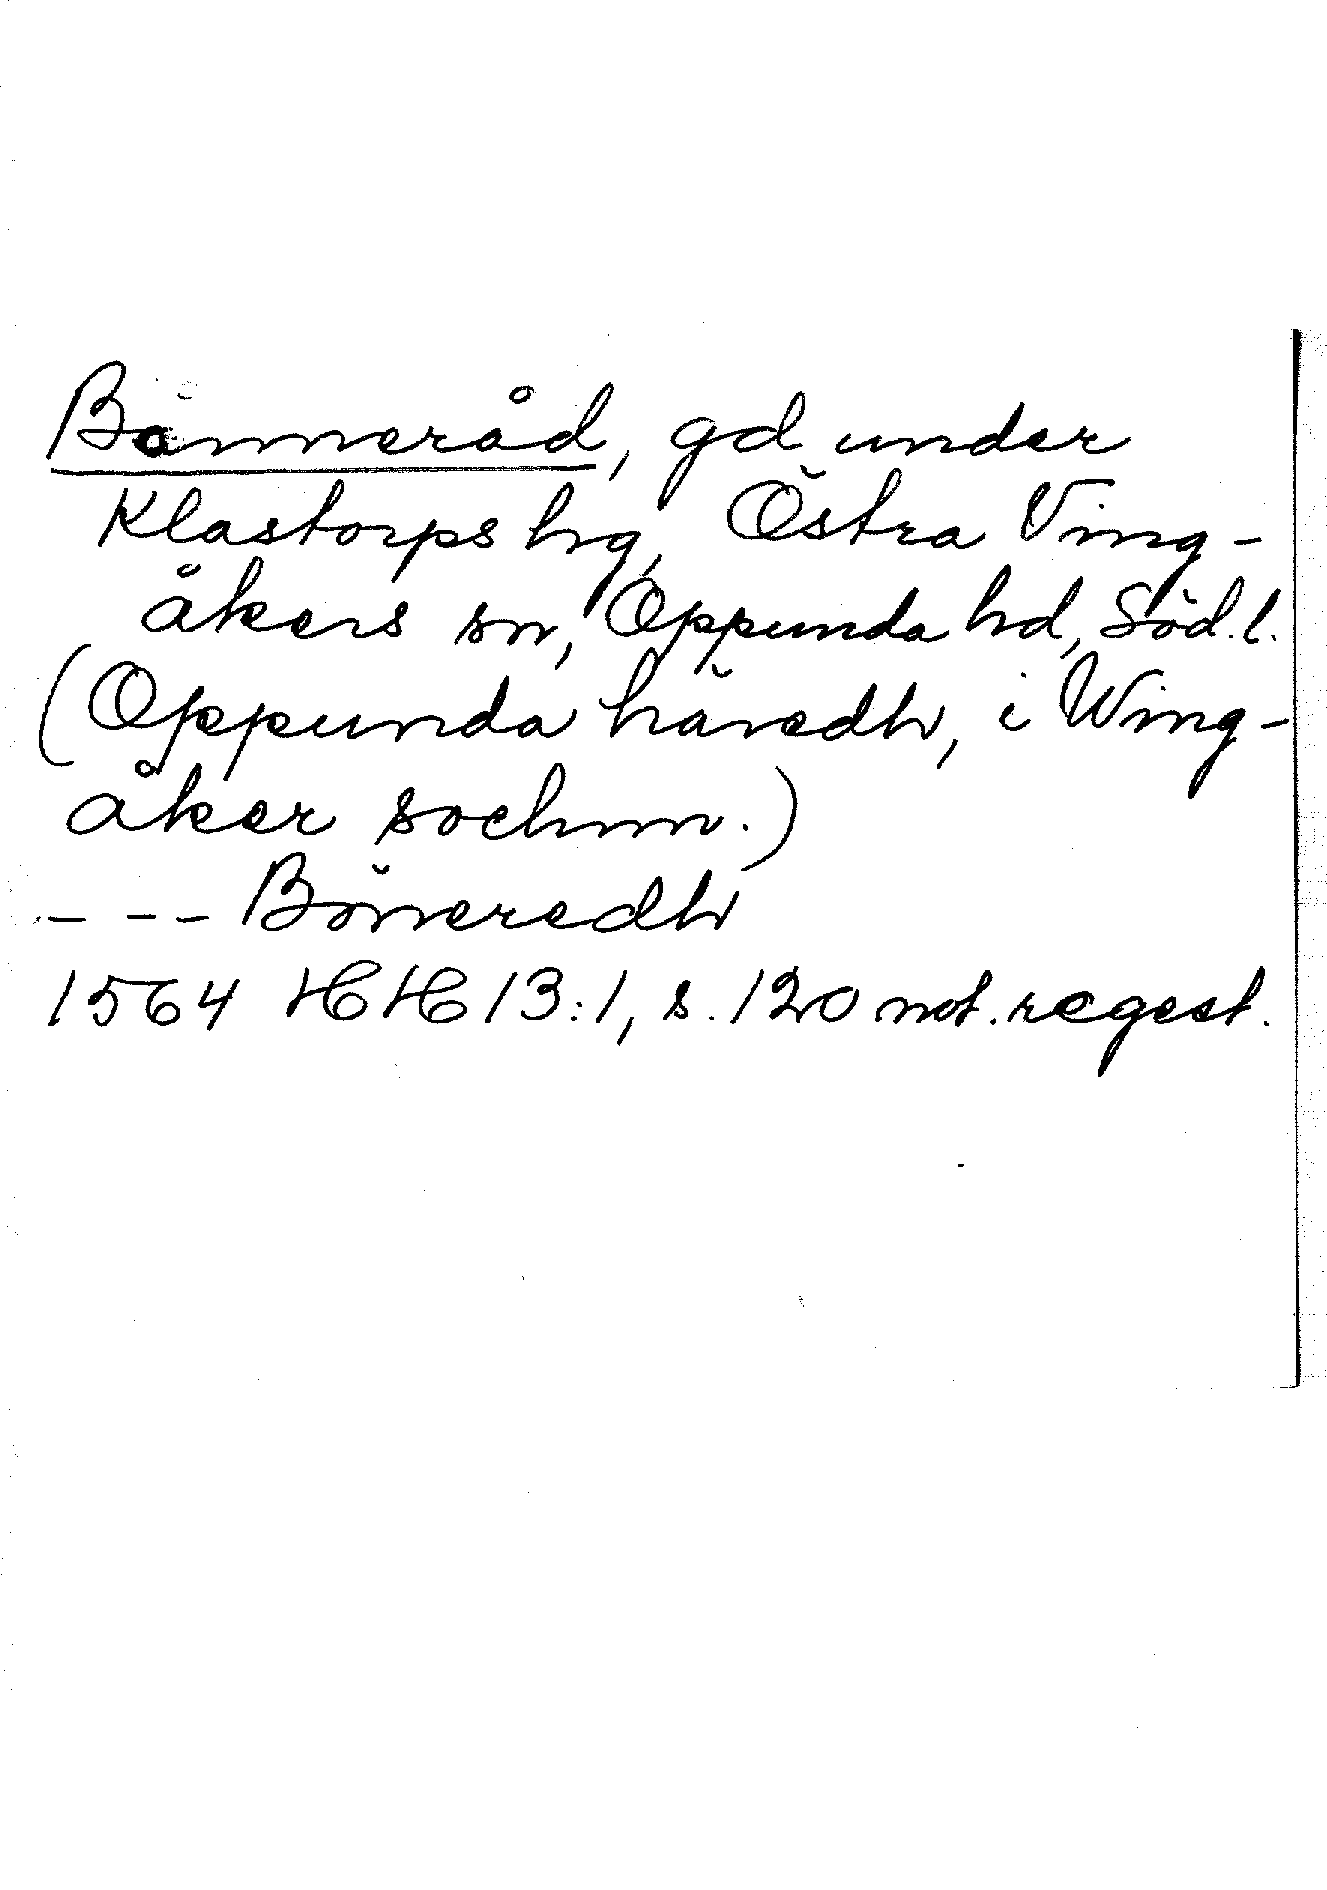 Bonneråd, gd under
Klastorps hg, Östra Ving-
åkers sn, Oppunda hd, Söd.l.
(Oppunda häredh, i Wing-
åker sochnn.)
--- Böneredh
1564 HH 13:1, s. 120 not. regest.